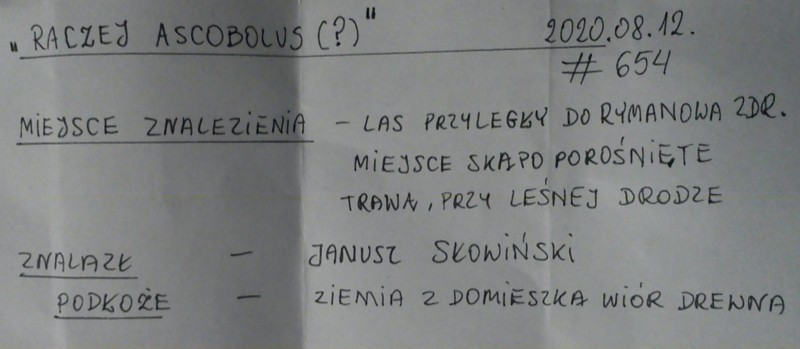 „RACZEJ ASCOBOLUS (?)" 2020.08.12.
# 654
MIEJSCE ZNALEZIENIA - LAS PRZYLEGŁY DO RYMANOWA ZDR.
MIEJSCE SKĄPO POROŚNIĘTE
TRAWĄ, PRZY LEŚNEJ DRODZE
ZNALAZŁ - JANUSZ SŁOWIŃSKI
PODŁOŻE - ZIEMIA Z DOMIESZKĄ WIÓR DREWNA